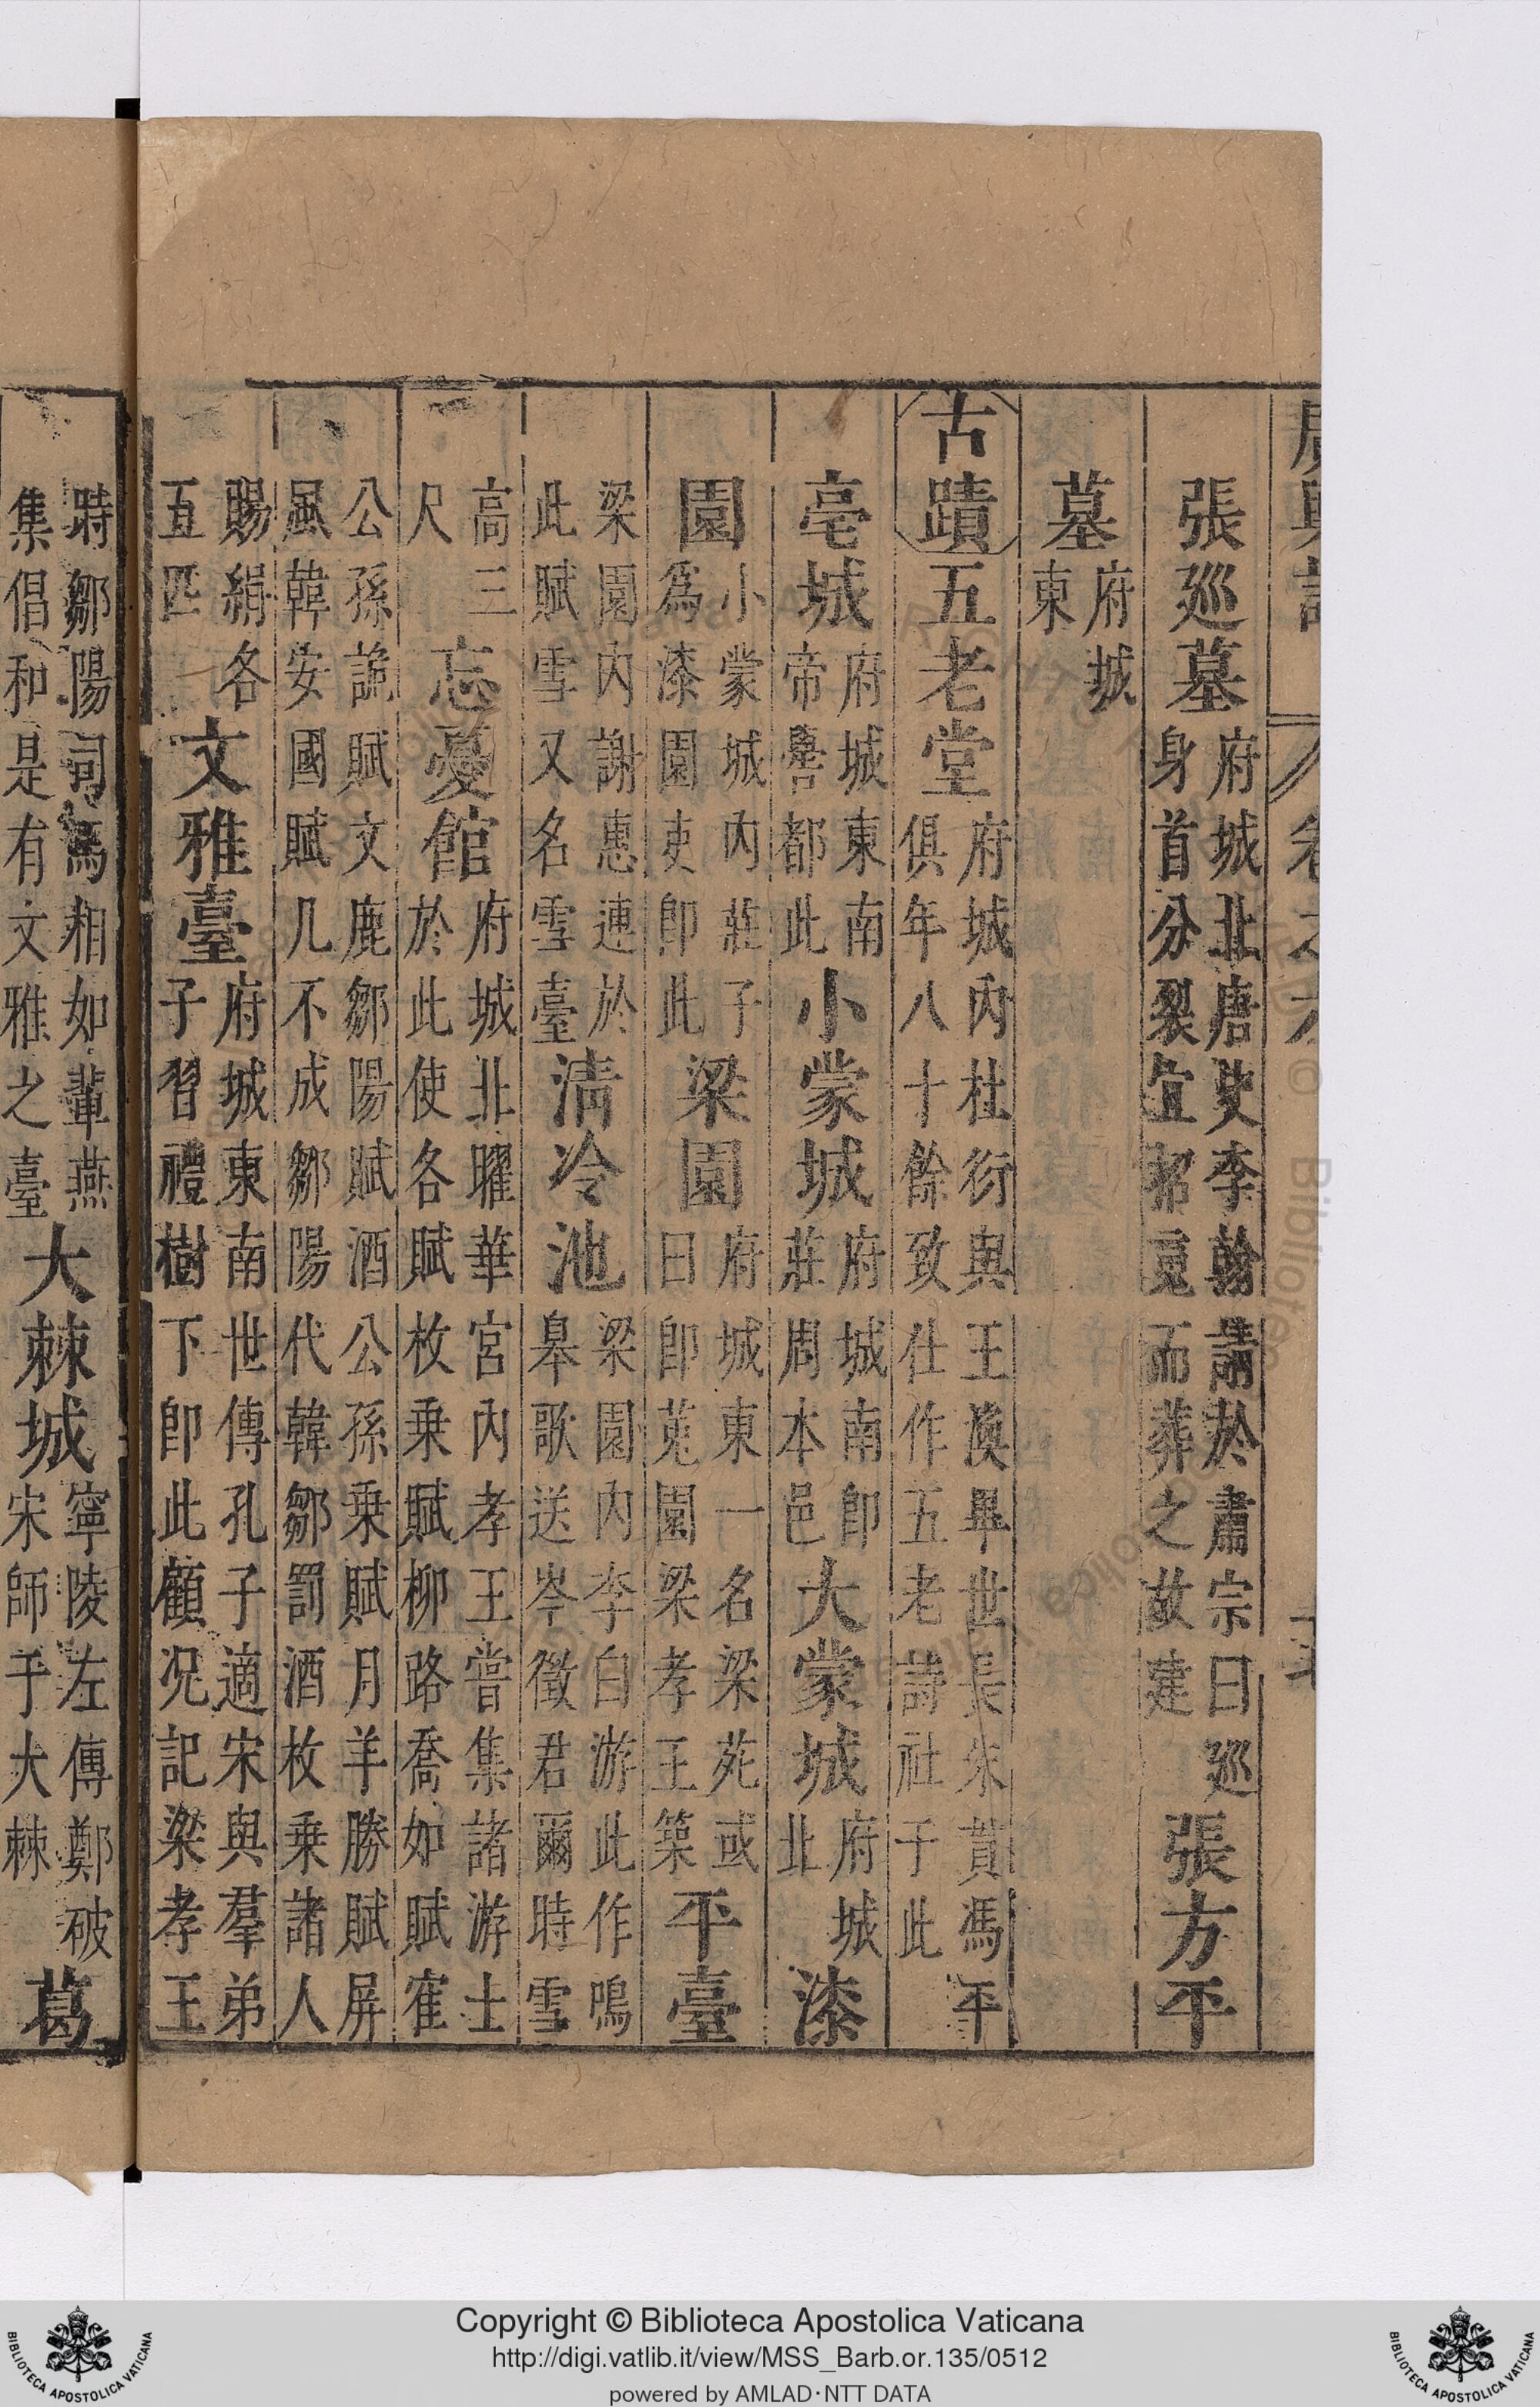 張廵墓府城北唐史李翰請於肅宗曰廵身首分裂宜招䰟而葬之故建張方平
墓府城東
古蹟五老堂府城內杜衍與王渙畢世長朱貫馮平俱年八十餘致仕作五老詩社于此
亳城府城東南帝嚳都此小蒙城府城南卽莊周本邑大蒙城府城北漆
園小蒙城內莊子為漆園吏卽此梁園府城東一名梁苑或曰卽菟園梁孝王築平臺
梁園內謝惠連於此賦雪又名雪臺清冷池梁園內李白游此作鳴皋歌送岑徵君爾時雪
高三尺忘憂館府城北曜華宮內孝王嘗集諸游士於此使各賦枚乗賦柳路喬如賦寉
公孫詭賦文鹿鄒陽賦酒公孫乗賦月羊勝賦屏風韓安國賦几不成鄒陽代韓鄒罰酒枚乗諸人
賜絹各五匹文雅臺府城東南世傳孔子適宋與羣弟子習禮樹下卽此顧況記梁孝王
時鄒陽司馬相如輩燕集倡和是有文雅之臺大棘城寧陵左傳鄭破宋師于大棘葛
Copyright © Biblioteca Apostolica Vaticana
http://digi.vatlib.it/view/MSS_Barb.or.135/0512
powered by AMLAD·NTT DATA
BIBLIOTECA APOSTOLICA VATICANA
BIBLIOTECA APOSTOLICA VATICANA